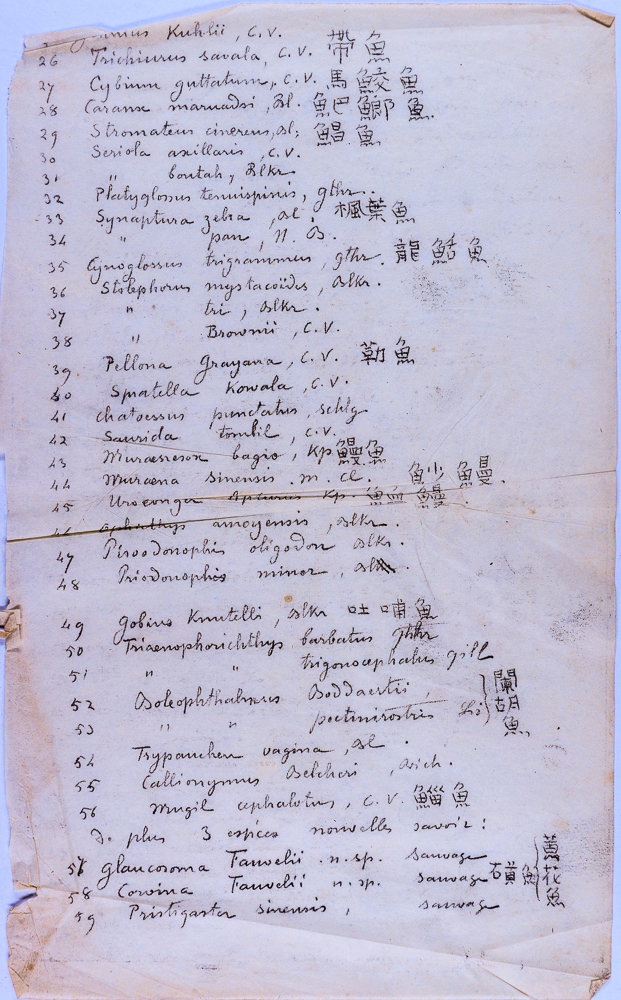 Kuhlii, C.V.
26 Trichiurus savala, C.V. 帶魚
27 Cybium guttatum, C.V. 馬鮫魚
28 Caranx maruadsi, Bl. 䰾鯽魚
29 Stromateus cinereus, Bl; 鯧魚
30 Seriola axillaris, C.V.
31 " boutah, Blkr
32 Platyglossus tenuispinis, gthr.
33 Synaptura zebra, Bl. 楓葉魚
34 " pan, H.B.
35 Cynoglossus trigrammus, gthr. 龍鮚魚
36 Stolephorus mystacoïdes, Blkr.
37 " tri, Blkr.
38 " Brownii, C.V.
39 Pellona Grayana, C.V. 勒魚
40 Spratella Kowala, C.V.
41 Chatoessus punctatus, schlg
42 Saurida tombil, C.V.
43 Muraenesox bagio, Kp 鰻魚
44 Muraena sinensis. m. cl. 魦鰻.
45 Uroconger Kp. 鰻.
46 amoyensis, Blkr.
47 Pisoodonophis oligodon Blkr.
48 Pisodonophis minor, Blk.
49 Gobius Knutelli, Blkr 吐哺魚
50 Triaenophorichthys barbatus gthr
51 " " trigonocephalus gill
52 Boleophthalmus Boddaertii,
53 " " pectinirostris Li } 闌胡魚
54 Trypauchen vagina, Bl.
55 Callionymus Belcheri, Rich.
56 Mugil cephalotus, C.V. 鯔魚
De plus 3 espèces nouvelles savoir:
57 Glaucosoma Fauvelii. n.sp. sauvage
58 Corvina Fauvelii n.sp. sauvage 花魚
59 Pristigaster sinensis, sauvage